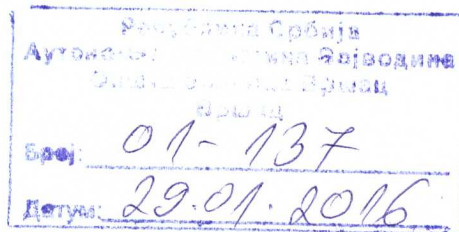 Република Србија
Аутономна покрајина Војводина
Вршац
Вршац
Број: 01-137
Датум: 29.01.2016